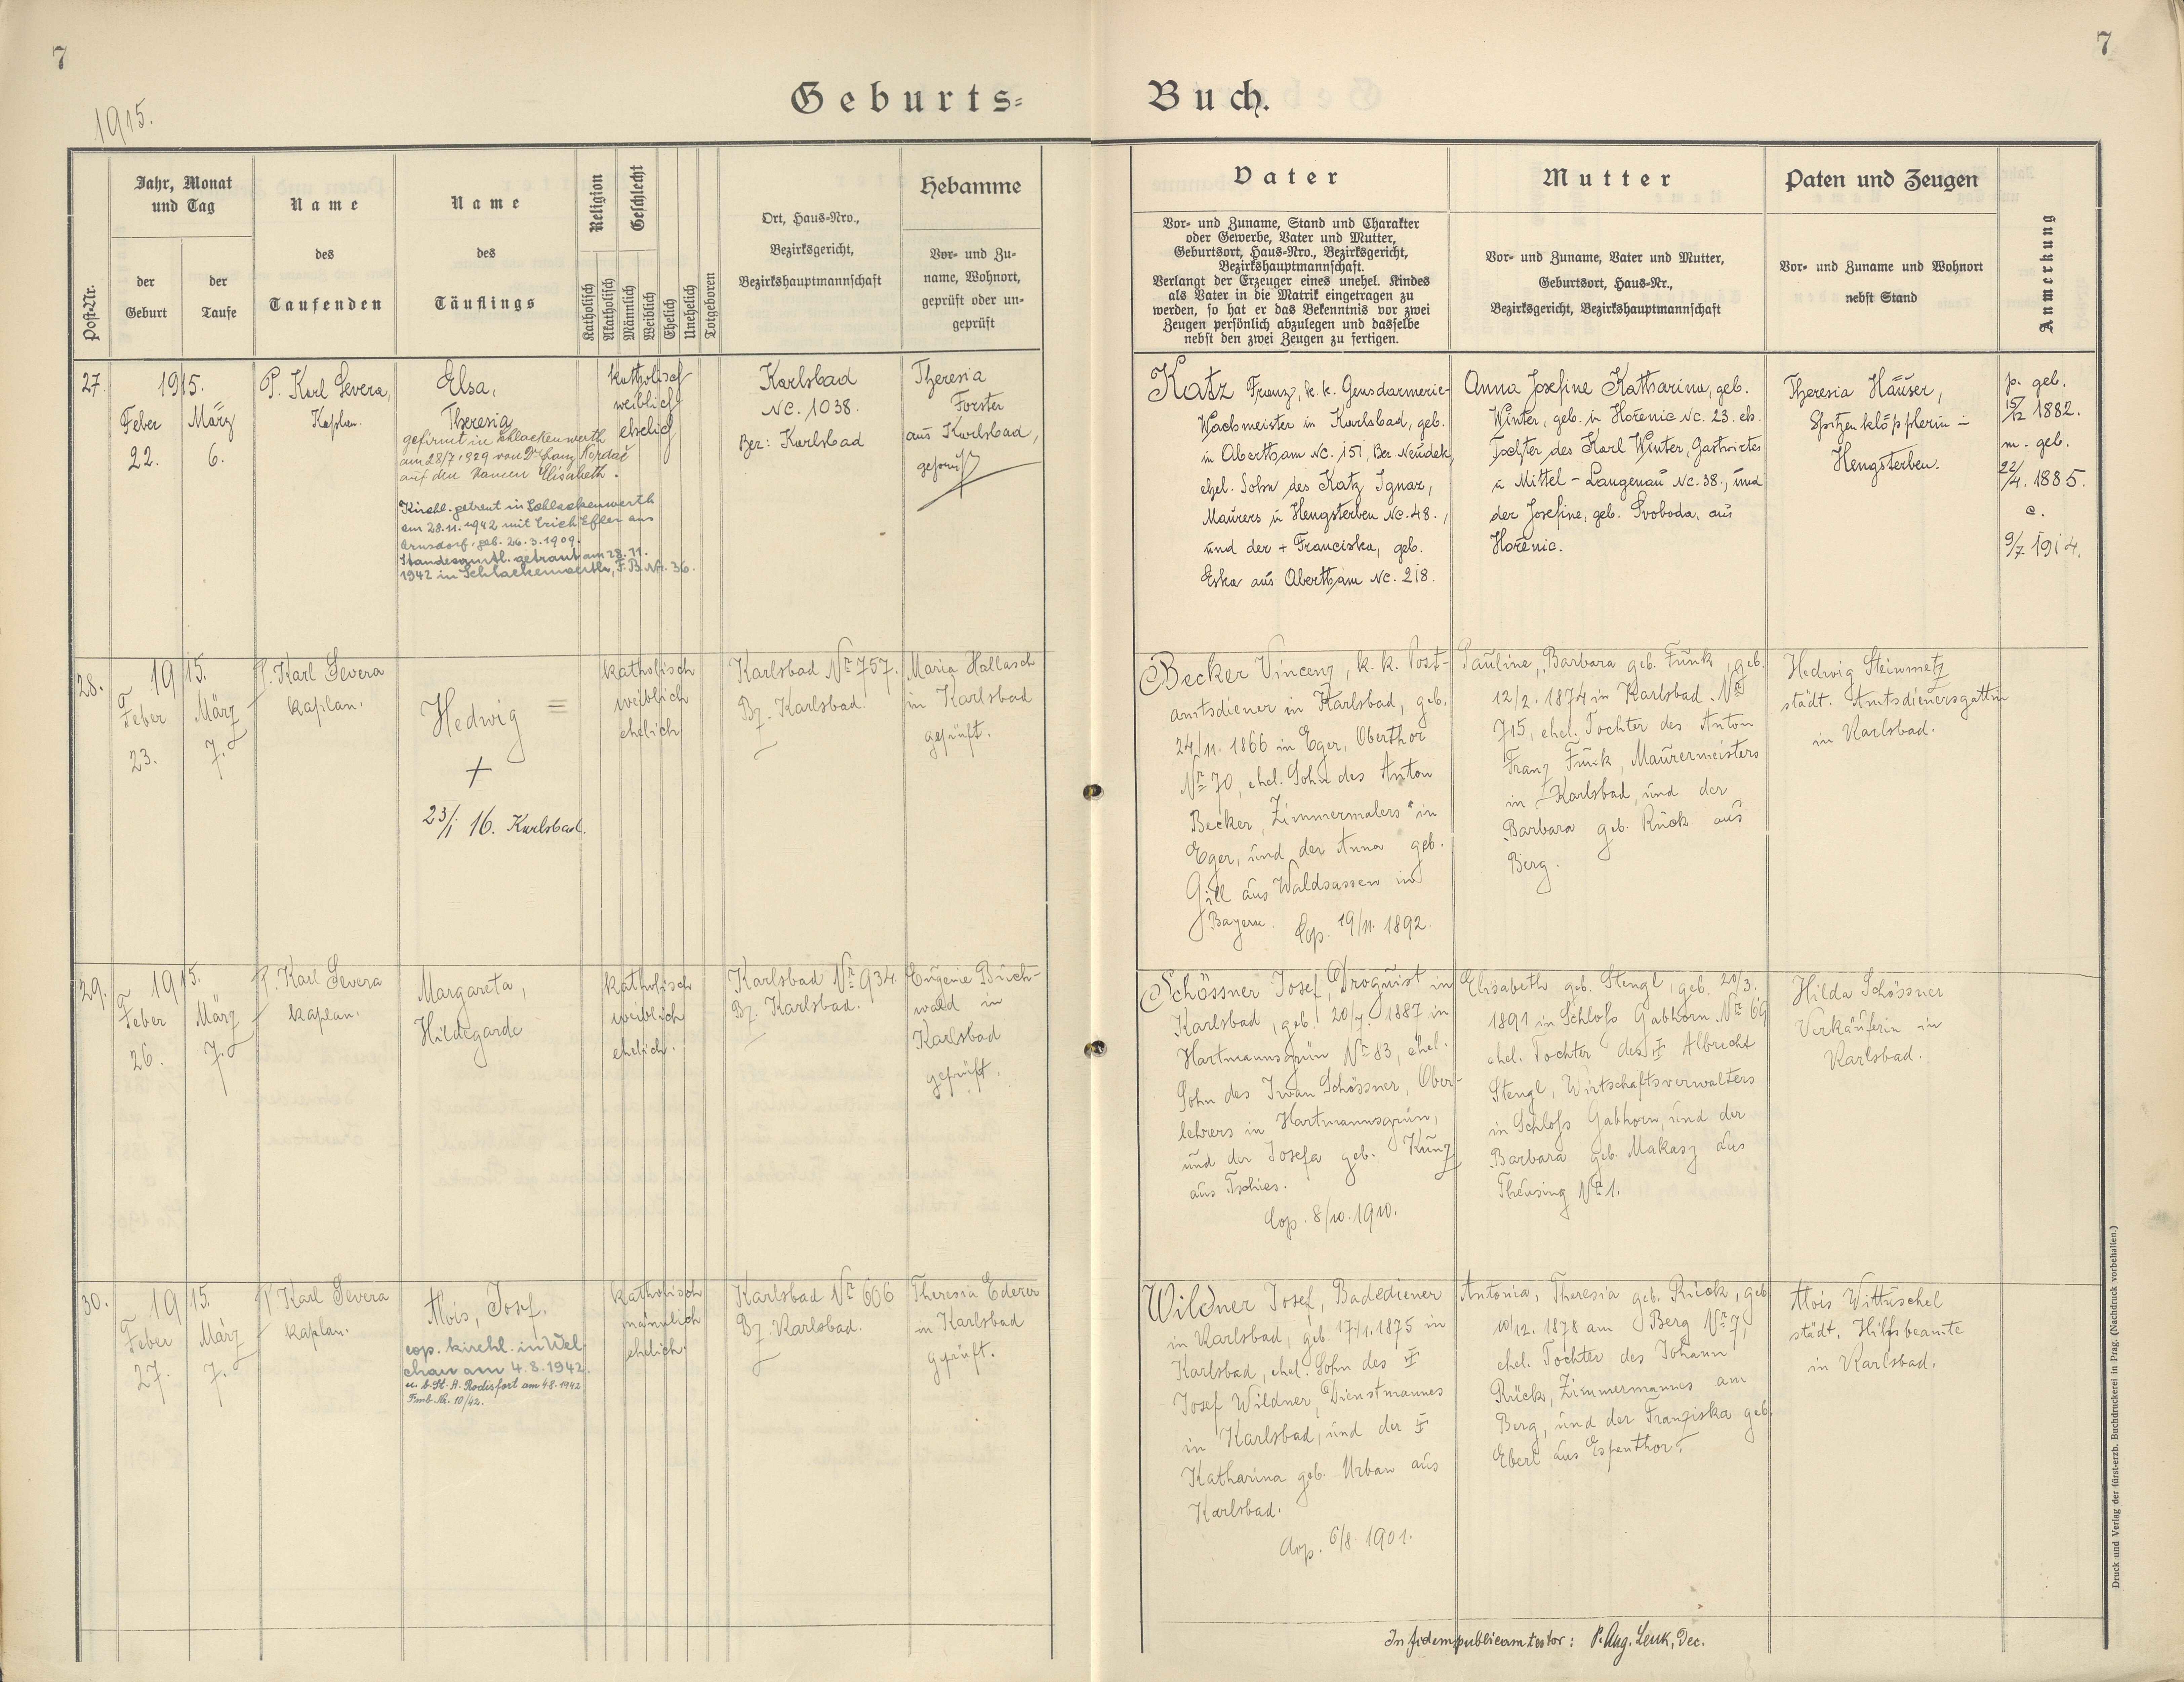 7
7
1915.
Geburts=
Buch.
Post-Nr.
Jahr, Monat
und Tag
der
Geburt
der
Taufe
Name
des
Taufenden
Name
des
Täuflings
Religion
Geschlecht
Katholisch
Akatholisch
Männlich
Weiblich
Ehelich
Unehelich
Totgeboren
Ort, Haus-Nro.,
Bezirksgericht,
Bezirkshauptmannschaft
Hebamme
Vor- und Zu-
name, Wohnort,
geprüft oder un-
geprüft
Vater
Vor- und Zuname, Stand und Charakter
oder Gewerbe, Vater und Mutter,
Geburtsort, Haus-Nro., Bezirksgericht,
Bezirkshauptmannschaft.
Verlangt der Erzeuger eines unehel. Kindes
als Vater in die Matrik eingetragen zu
werden, so hat er das Bekenntnis vor zwei
Zeugen persönlich abzulegen und dasselbe
nebst den zwei Zeugen zu fertigen.
Mutter
Vor- und Zuname, Vater und Mutter,
Geburtsort, Haus-Nr.,
Bezirksgericht, Bezirkshauptmannschaft
Paten und Zeugen
Vor- und Zuname und Wohnort
nebst Stand
Anmerkung
27.
1915.
Feber
22.
März
6.
P. Karl Severa,
Kaplan.
Elsa,
Theresia
gefirmt in Schlackenwerth
am 28/7 1929 von Dr. Kordač
auf den Namen Elisabeth.
Kirchl. getraut in Schlackenwerth
am 28.11.1942 mit Erich Efler aus
Arnsdorf, geb. 26.3.1909.
Standesamtl. getraut am 28.11.
1942 in Schlackenwerth, F. B. Nr. 36.
katholisch
weiblich
ehelich
Karlsbad
Nc. 1038.
Bez: Karlsbad
Theresia
Forster
aus Karlsbad,
geprüft
Katz Franz, k. k. Gensdarmerie-
Wachmeister in Karlsbad, geb.
in Abertham Nc. 151, Bez Neudek,
ehel. Sohn des Katz Ignaz,
Maurers in Hengsterben Nc. 48.,
und der + Franciska, geb.
Eska aus Abertham Nc. 218.
Anna Josefine Katharina, geb.
Winter, geb. in Hořenic Nc. 23. eh.
Tochter des Karl Winter, Gastwirtes
in Mittel-Langenau Nc. 38., und
der Josefine, geb. Svoboda, aus
Hořenic.
Theresia Häuser,
Spitzenklöpplerin in
Hengsterben.
p. geb.
15/12 1882.
m. geb.
22/4. 1885.
c.
9/7 1914.
28.
1915.
Feber
23.
März
7.
P. Karl Severa
Kaplan.
Hedwig =
+
23/1 16. Karlsbad.
katholisch
weiblich
ehelich
Karlsbad Nr 757.
Bz. Karlsbad.
Maria Hallasch
in Karlsbad
geprüft.
Becker Vincenz, k. k. Post-
amtsdiener in Karlsbad, geb.
24/11. 1866 in Eger, Oberthor
Nr 70, ehel. Sohn des Anton
Becker, Zimmermalers in
Eger, und der Anna geb.
Gill aus Waldsassen in
Bayern. Cop. 19/11. 1892.
Pauline, Barbara geb. Funk, geb.
12/2. 1874 in Karlsbad Nr
715, ehel. Tochter des Anton
Franz Funk, Maurermeisters
in Karlsbad, und der
Barbara geb. Rück aus
Berg.
Hedwig Steinmetz
städt. Amtsdienersgattin
in Karlsbad.
29.
1915.
Feber
26.
März
7.
P. Karl Severa
Kaplan.
Margareta,
Hildegarde
katholisch
weiblich
ehelich.
Karlsbad Nr 934
Bz. Karlsbad.
Eugenie Buch-
wald in
Karlsbad
geprüft.
Schössner Josef, Droguist in
Karlsbad, geb. 20/7. 1887 in
Hartmannsgrün Nr 83, ehel.
Sohn des Irwan Schössner, Ober-
lehrers in Hartmannsgrün,
und der Josefa geb. Kunz
aus Tschies.
Cop. 8/10. 1910.
Elisabeth geb. Stengl, geb. 20/3.
1891 in Schloss Gabhorn Nr 69
ehel. Tochter des + Albrecht
Stengl, Wirtschaftsverwalters
in Schloss Gabhorn, und der
Barbara geb. Makasz aus
Theusing Nr 1.
Hilda Schössner
Verkäuferin in
Karlsbad.
30.
1915.
Feber
27.
März
7.
P. Karl Severa
Kaplan.
Alois, Josef.
cop. kirchl. in Wel-
chau am 4.8.1942.
u. b. St. A. Rodisfort am 4.8.1942
Fmb. Nr. 10/42.
katholisch
männlich
ehelich.
Karlsbad Nr 606
Bz. Karlsbad.
Theresia Ederer
in Karlsbad
geprüft.
Wildner Josef, Badediener
in Karlsbad, geb. 17/1. 1875 in
Karlsbad, ehel. Sohn des +
Josef Wildner, Dienstmannes
in Karlsbad, und der +
Katharina geb. Urban aus
Karlsbad.
Cop. 6/8. 1901.
Antonia, Theresia geb. Rück, geb
10/12. 1878 am Berg Nr 7,
ehel. Tochter des Johann
Rück, Zimmermannes am
Berg, und der Franziska geb.
Eberl aus Espenthor.
Alois Wittuschel
städt. Hilfsbeamte
in Karlsbad.
In fidem publicam testor: P. Aug. Lenk, Dec.
Druck und Verlag der fürst-erzb. Buchdruckerei in Prag. (Nachdruck vorbehalten.)